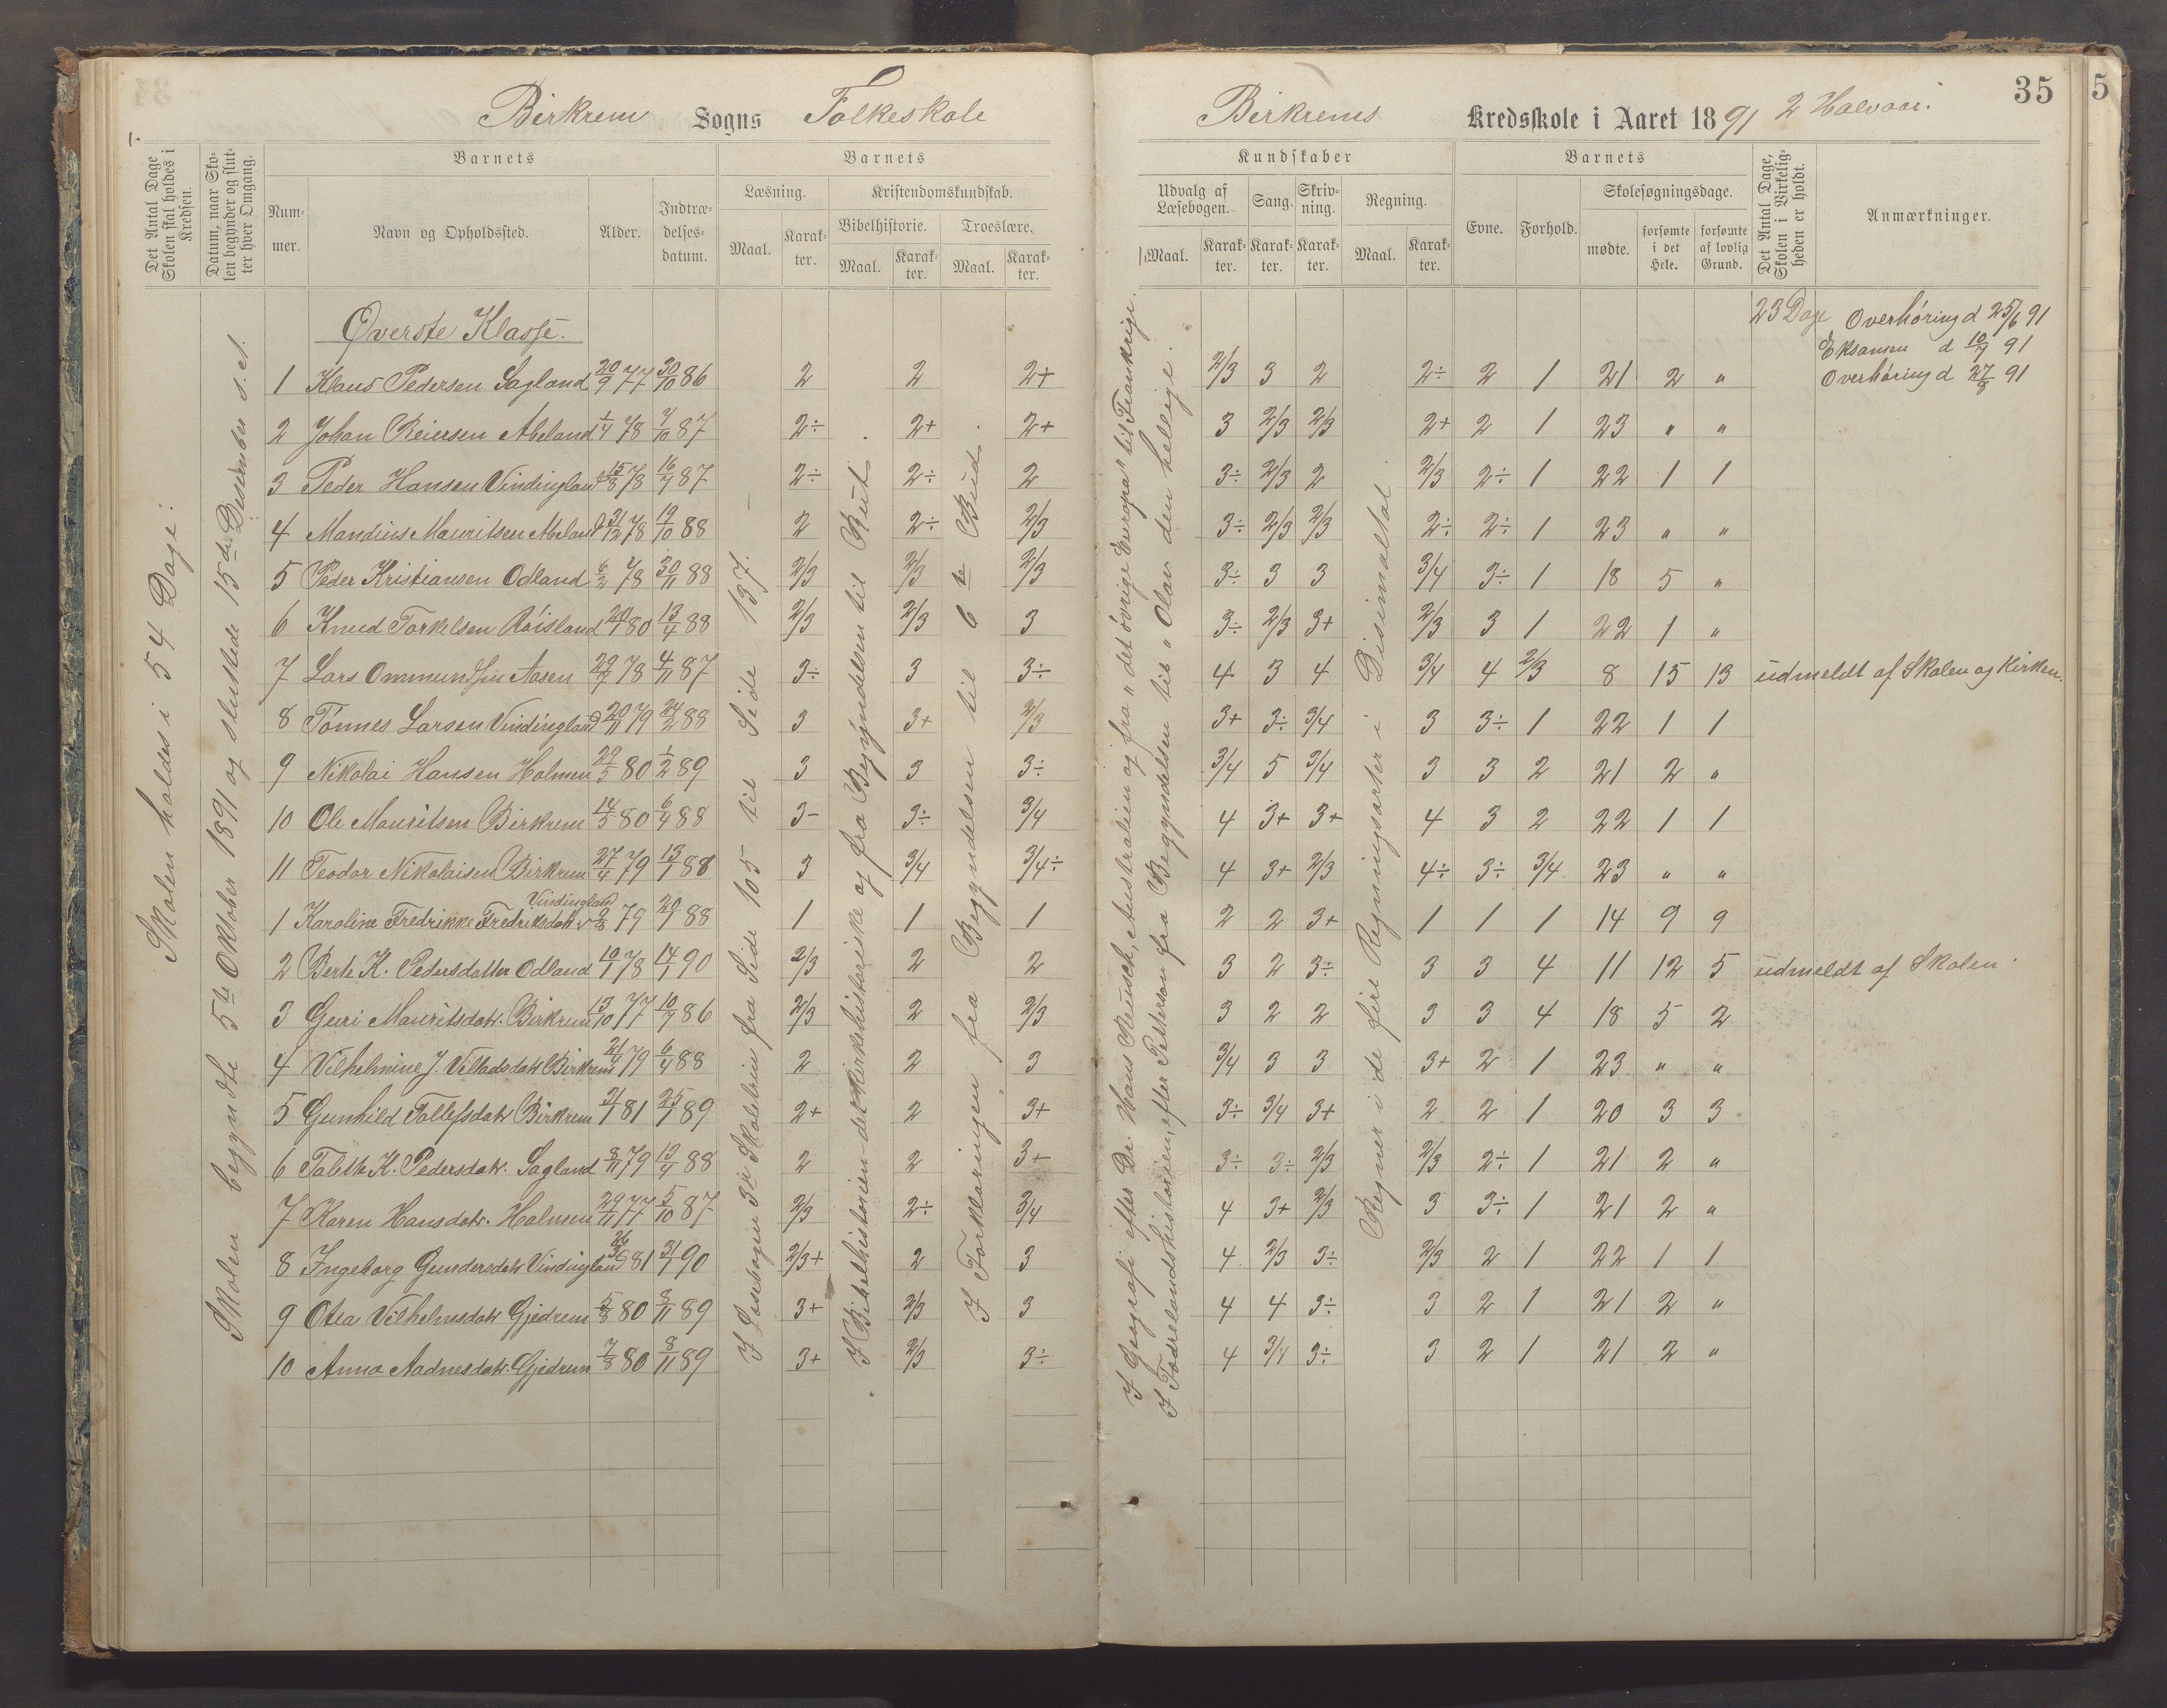 Birkrem Sogns Folkeskole
Birkrems Kredsskole i Aaret 1891 2 Halvaar.
35
5
Det Antal Dage Skolen skal holdes i Kredsen.
Datum, naar Skolen begynder og slutter hver Omgang.
Barnets
Nummer.
Navn og Opholdssted.
Alder.
Indtrædelsesdatum.
Barnets
Læsning.
Maal.
Karakter.
Kristendomskundskab.
Bibelhistorie.
Maal.
Karakter.
Troeslære.
Maal.
Karakter.
Kundskaber
Udvalg af Læsebogen.
Maal.
Karakter.
Sang.
Karakter.
Skrivning.
Karakter.
Regning.
Maal.
Karakter.
Barnets
Evne.
Forhold.
Skolesøgningsdage.
mødte.
forsømte i det Hele.
forsømte af lovlig Grund.
Det Antal Dage, Skolen i Virkeligheden er holdt.
Anmærkninger.
Skolen holdes i 54 Dage.
Skolen begyndte 5te Oktober 1891 og sluttede 15de Desember s. A.
I Læsebogen 3die Skoletrin fra Side 105 til Side 137.
I Bibelhistorien det kirkehistoriske og fra Begyndelsen til Rut.
I Forklaringen fra Begyndelsen til 6te Bud.
I Geografi efter Dr. Hans Reusch, Australien og fra "det øvrige Europa" til Frankrige.
I Fædrelandshistorien, efter Petterson fra Begyndelsen til "Olav den hellige".
Regner i de fire Regningsarter i Desimaltal.
Øverste Klasse.
23 Dage Overhøring d 25/6 91
Eksamen d 10/7 91
Overhøring d 27/8 91
1 Klaus Pedersen Sagland 20/9 77 30/10 86 2 2 2+ 2/3 3 2 2÷ 2 1 21 2 "
2 Johan Reiersen Abeland 1/4 78 7/10 87 2÷ 2+ 2+ 3 2/3 2/3 2+ 2 1 23 " "
3 Peder Hansen Vindingland 15/8 78 16/7 87 2÷ 2÷ 2 3÷ 2/3 2 2/3 2÷ 1 22 1 1
4 Mandius Mauritsen Abeland 31/12 78 19/10 88 2 2÷ 2/3 3÷ 2/3 2/3 2÷ 2÷ 1 23 " "
5 Peder Kristiansen Odland 6/2 78 30/11 88 2/3 2/3 2/3 3÷ 3 3 3/4 3÷ 1 18 5 "
6 Knud Torkelsen Røisland 20/1 80 13/4 88 2/3 2/3 3 3÷ 2/3 3+ 2/3 3 1 22 1 "
7 Lars Ommundsen Aasen 29/7 78 4/11 87 3÷ 3 3÷ 4 3 4 3/4 4 2/3 8 15 13 udmeldt af Skolen og Kirken.
8 Tönnes Larsen Vindingland 20/11 79 24/2 88 3 3+ 2/3 3+ 3÷ 3/4 3 3÷ 1 22 1 1
9 Nikolai Hansen Holmen 29/5 80 1/2 89 3 3 3÷ 3/4 5 3/4 3 3 2 21 2 "
10 Ole Mauritsen Birkrem 14/5 80 6/4 88 3- 3÷ 3/4 4 3+ 3+ 4 3 2 22 1 1
11 Teodor Nikolaisen Birkrem 27/4 79 13/1 88 3 3/4 3/4÷ 4 3+ 2/3 4÷ 3÷ 3/4 23 " "
Vindingland
1 Karoline Fredrikke Fredriksdatr 2/8 79 20/1 88 1 1 1 2 2 3+ 1 1 1 14 9 9
2 Berte K. Pedersdatter Odland 10/1 78 14/1 90 2/3 2 2 3 2 3÷ 3 3 4 11 12 5 udmeldt af Skolen.
3 Guri Mauritsdatr. Birkrem 13/10 77 10/9 86 2/3 2 2/3 3 2 2 3 3 4 18 5 2
4 Vilhelmine J. Villadsdatr Birkrem 21/4 79 6/4 88 2 2 3 3/4 3 3 3+ 2 1 23 " "
5 Gunhild Tollefsdatr Birkrem 31/1 81 25/1 89 2+ 2 3+ 3÷ 3/4 3+ 2 2 1 20 3 3
6 Tabitte K. Pedersdatr. Sagland 8/11 79 13/4 88 2 2 3+ 3÷ 3÷ 2/3 2/3 2÷ 1 21 2 "
7 Karen Hansdatr. Holmen 29/11 77 5/10 87 2/3 2÷ 3/4 4 3+ 2/3 3 3÷ 1 21 2 "
8 Ingeborg Gundersdatr Vindingland 26/3 81 31/1 90 2/3+ 2 3 4 2/3 3÷ 2/3 2 1 22 1 1
9 Otea Vilhelmsdatr Gjedrem 5/8 80 8/11 89 3+ 2/3 3 4 4 3÷ 3 2 1 21 2 "
10 Anna Aadnesdatr. Gjedrem 7/8 80 8/11 89 3+ 2/3 3÷ 4 3/4 3÷ 3 2 1 21 2 "